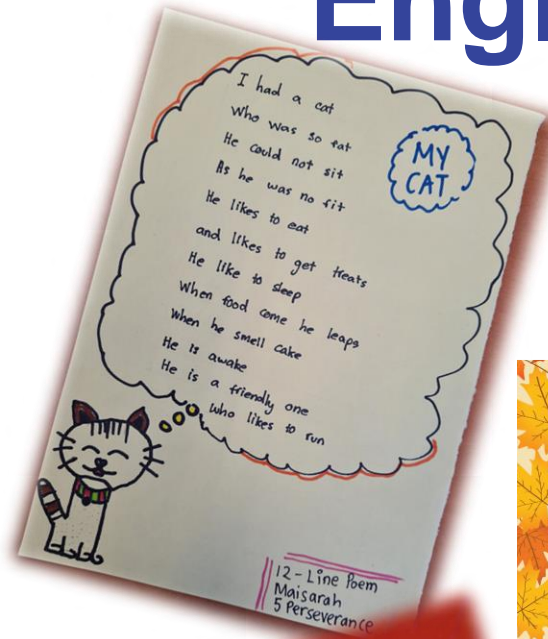 Engl
MY
CAT
I had a cat
Who was so fat
He could not sit
As he was no fit
He likes to eat
and likes to get treats
He like to sleep
When food come he leaps
When he smell cake
He is awake
He is a friendly one
who likes to run
12-Line Poem
Maisarah
5 Perseverance